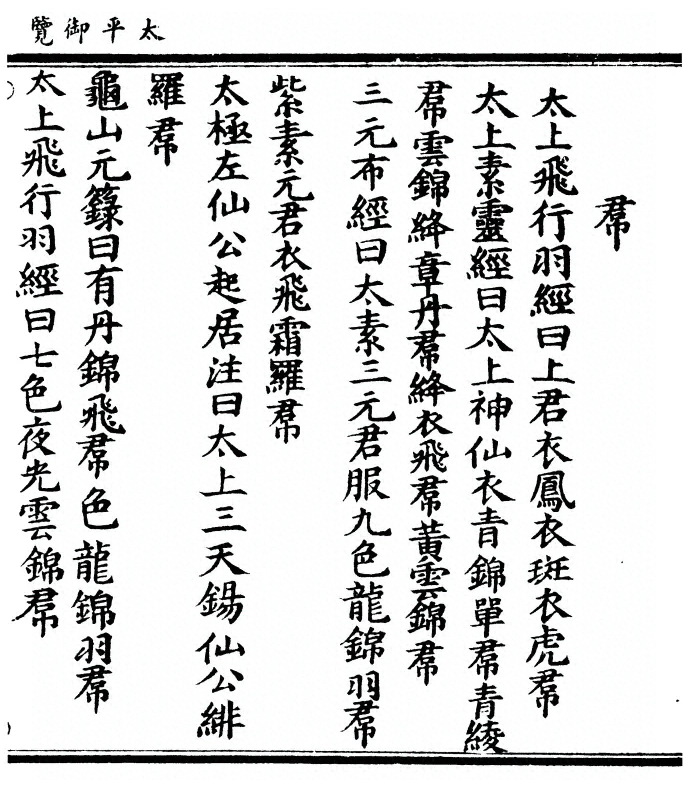 太平御覽
帬
太上飛行羽經曰上君衣鳳衣斑衣虎帬
太上素靈經曰太上神仙衣青錦單帬青綾
帬雲錦絳章丹帬絳衣飛帬黃雲錦帬
三元布經曰太素三元君服九色龍錦羽帬
紫素元君衣飛霜羅帬
太極左仙公起居注曰太上三天錫仙公緋
羅帬
龜山元籙曰有丹錦飛帬色龍錦羽帬
太上飛行羽經曰七色夜光雲錦帬